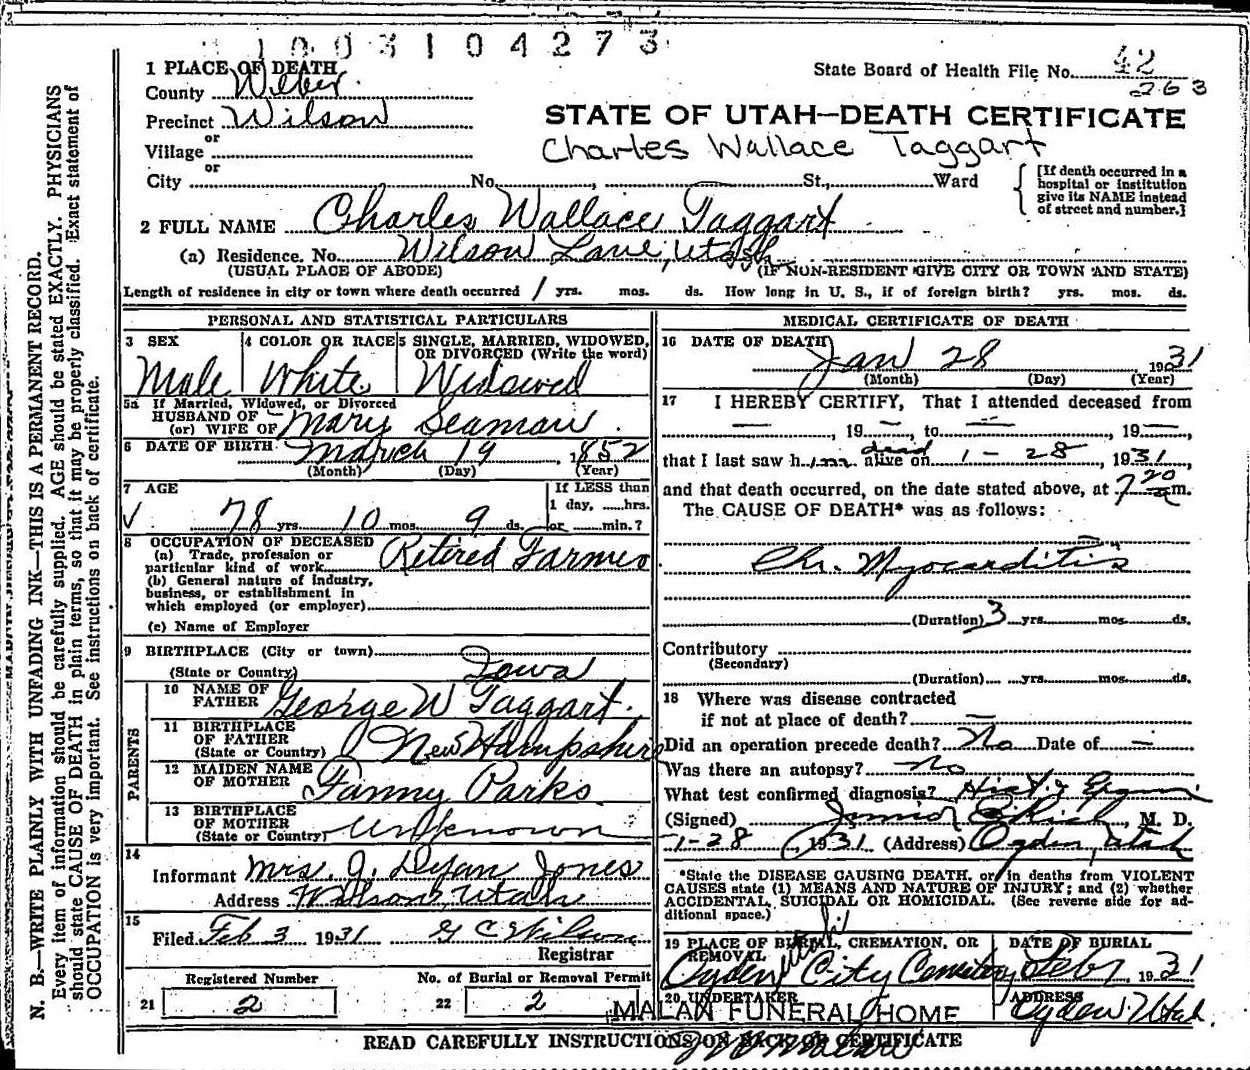 1003104273
1 PLACE OF DEATH
State Board of Health File No. 42
263
County Weber
Precinct Wilson
STATE OF UTAH—DEATH CERTIFICATE
or
Village
Charles Wallace Taggart
or
City No. , St., Ward
[If death occurred in a hospital or institution give its NAME instead of street and number.]
2 FULL NAME Charles Wallace Taggart
(a) Residence. No. Wilson Lane, Utah
(USUAL PLACE OF ABODE) (IF NON-RESIDENT GIVE CITY OR TOWN AND STATE)
Length of residence in city or town where death occurred 1 yrs. mos. ds. How long in U. S., if of foreign birth? yrs. mos. ds.
PERSONAL AND STATISTICAL PARTICULARS
3 SEX
Male
4 COLOR OR RACE
White
5 SINGLE, MARRIED, WIDOWED, OR DIVORCED (Write the word)
Widowed
5a If Married, Widowed, or Divorced
HUSBAND OF
(or) WIFE OF Mary Seaman
6 DATE OF BIRTH March 19, 1852
(Month) (Day) (Year)
7 AGE
78 yrs 10 mos 9 ds.
If LESS than
1 day, hrs.
or min.?
8 OCCUPATION OF DECEASED
(a) Trade, profession or
particular kind of work Retired Farmer
(b) General nature of industry,
business, or establishment in
which employed (or employer)
(c) Name of Employer
9 BIRTHPLACE (City or town)
(State or Country) Iowa
PARENTS
10 NAME OF FATHER George W Taggart.
11 BIRTHPLACE OF FATHER
(State or Country) New Hampshire
12 MAIDEN NAME OF MOTHER Fanny Parks
13 BIRTHPLACE OF MOTHER
(State or Country) Unknown
14
Informant Mrs. J. Jones
Address Wilson, Utah
15
Filed Feb 3 1931 G C Wilson
Registrar
Registered Number
21 2
No. of Burial or Removal Permit
22 2
MEDICAL CERTIFICATE OF DEATH
16 DATE OF DEATH
Jan 28 1931
(Month) (Day) (Year)
17 I HEREBY CERTIFY, That I attended deceased from
— , 19 — , to — , 19 — ,
that I last saw him dead alive on 1-28, 1931,
and that death occurred, on the date stated above, at 7 20 a m.
The CAUSE OF DEATH* was as follows:
Chr. Myocarditis
(Duration) 3 yrs. mos. ds.
Contributory
(Secondary)
(Duration) yrs. mos. ds.
18 Where was disease contracted
if not at place of death? —
Did an operation precede death? No Date of —
Was there an autopsy? no
What test confirmed diagnosis? Hist. &
(Signed) , M. D.
1-28, 1931 (Address) Ogden, Utah
*State the DISEASE CAUSING DEATH, or in deaths from VIOLENT
CAUSES state (1) MEANS AND NATURE OF INJURY; and (2) whether
ACCIDENTAL, SUICIDAL OR HOMICIDAL. (See reverse side for ad-
ditional space.)
19 PLACE OF BURIAL, CREMATION, OR REMOVAL
Ogden Utah City Cemetery
DATE OF BURIAL
Feb 1, 1931
20 UNDERTAKER
MALAN FUNERAL HOME
ADDRESS
Ogden Utah.
READ CAREFULLY INSTRUCTIONS ON BACK OF CERTIFICATE
N. B.—WRITE PLAINLY WITH UNFADING INK—THIS IS A PERMANENT RECORD.
Every item of information should be carefully supplied. AGE should be stated EXACTLY. PHYSICIANS
should state CAUSE OF DEATH in plain terms, so that it may be properly classified. Exact statement of
OCCUPATION is very important. See instructions on back of certificate.